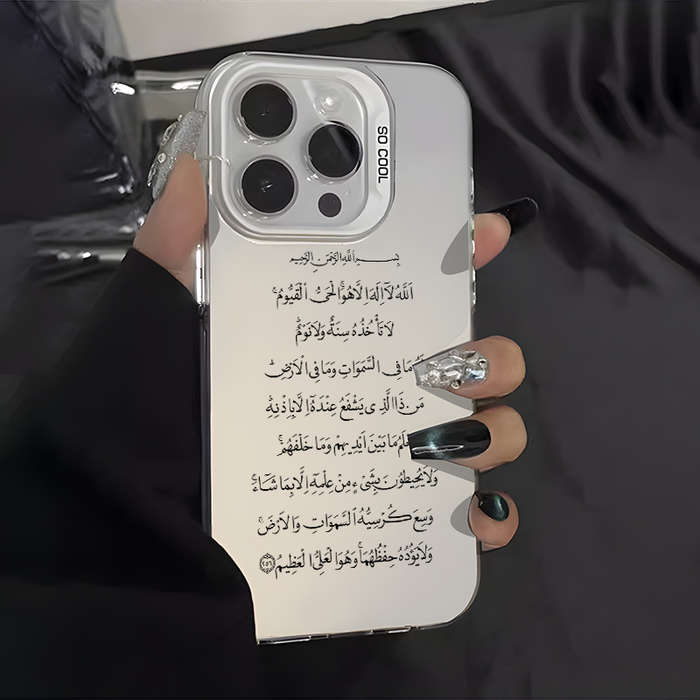 SO COOL
بسم الله الرحمن الرحيم
اَللّٰهُ لَاۤ اِلٰهَ اِلَّا هُوَۚ اَلْحَیُّ الْقَیُّوْمُ
لَا تَاْخُذُهٗ سِنَةٌ وَّلَا نَوْمٌ
مَا فِی السَّمٰوٰتِ وَمَا فِی الْاَرْضِ
مَنْ ذَا الَّذِیْ یَشْفَعُ عِنْدَهٗۤ اِلَّا بِاِذْنِهٖ
مَا بَیْنَ اَیْدِیْهِمْ وَمَا خَلْفَهُمْ
وَلَا یُحِیْطُوْنَ بِشَیْءٍ مِّنْ عِلْمِهٖۤ اِلَّا بِمَا شَآءَ
وَسِعَ كُرْسِیُّهُ السَّمٰوٰتِ وَالْاَرْضَ
وَلَا یَـُٔوْدُهٗ حِفْظُهُمَا وَهُوَ الْعَلِیُّ الْعَظِیْمُ